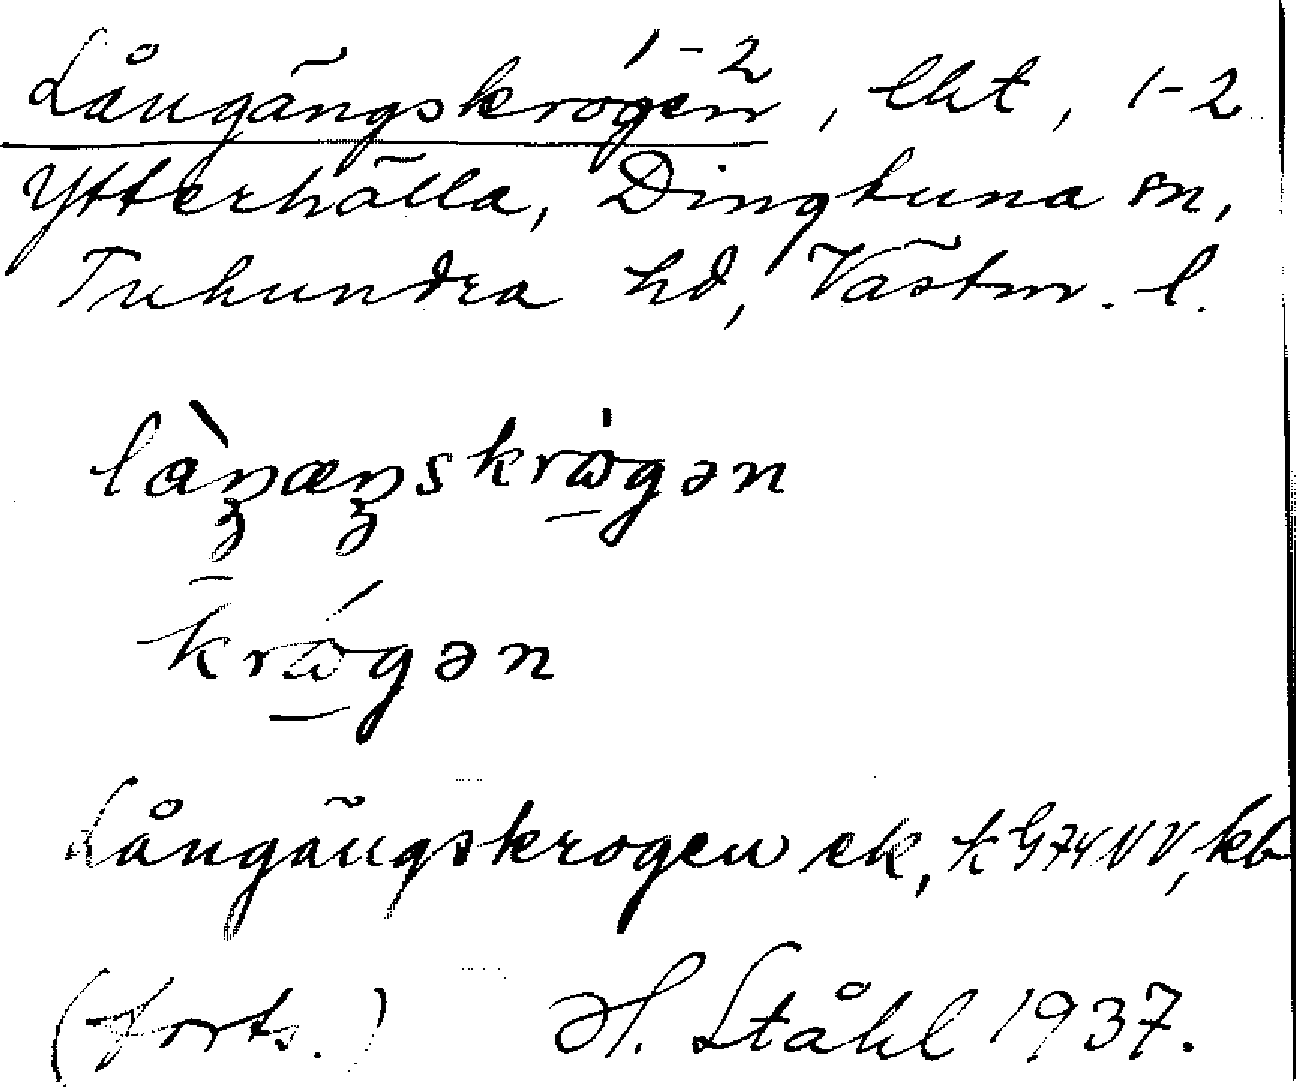 Långängskrogen 1-2, lht, 1-2
Ytterhälla, Dingtuna sn,
Tuhundra hd, Västm. l.
làŋæŋskrɷ̀gən
krɷ́gən
Långängskrogen ek, kb
(forts.) H. Ståhl 1937.